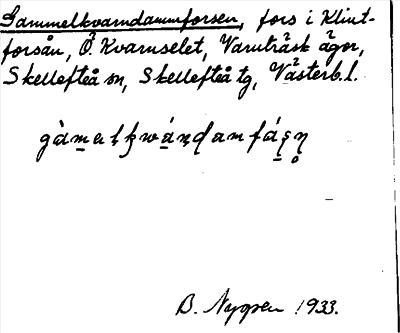 Gammelkvarndammforsen, fors i Klint-
forsån, Ö. Kvarnselet, Varuträsk ägor,
Skellefteå sn, Skellefteå tg, Västerb. l.
B. Nygren 1933.